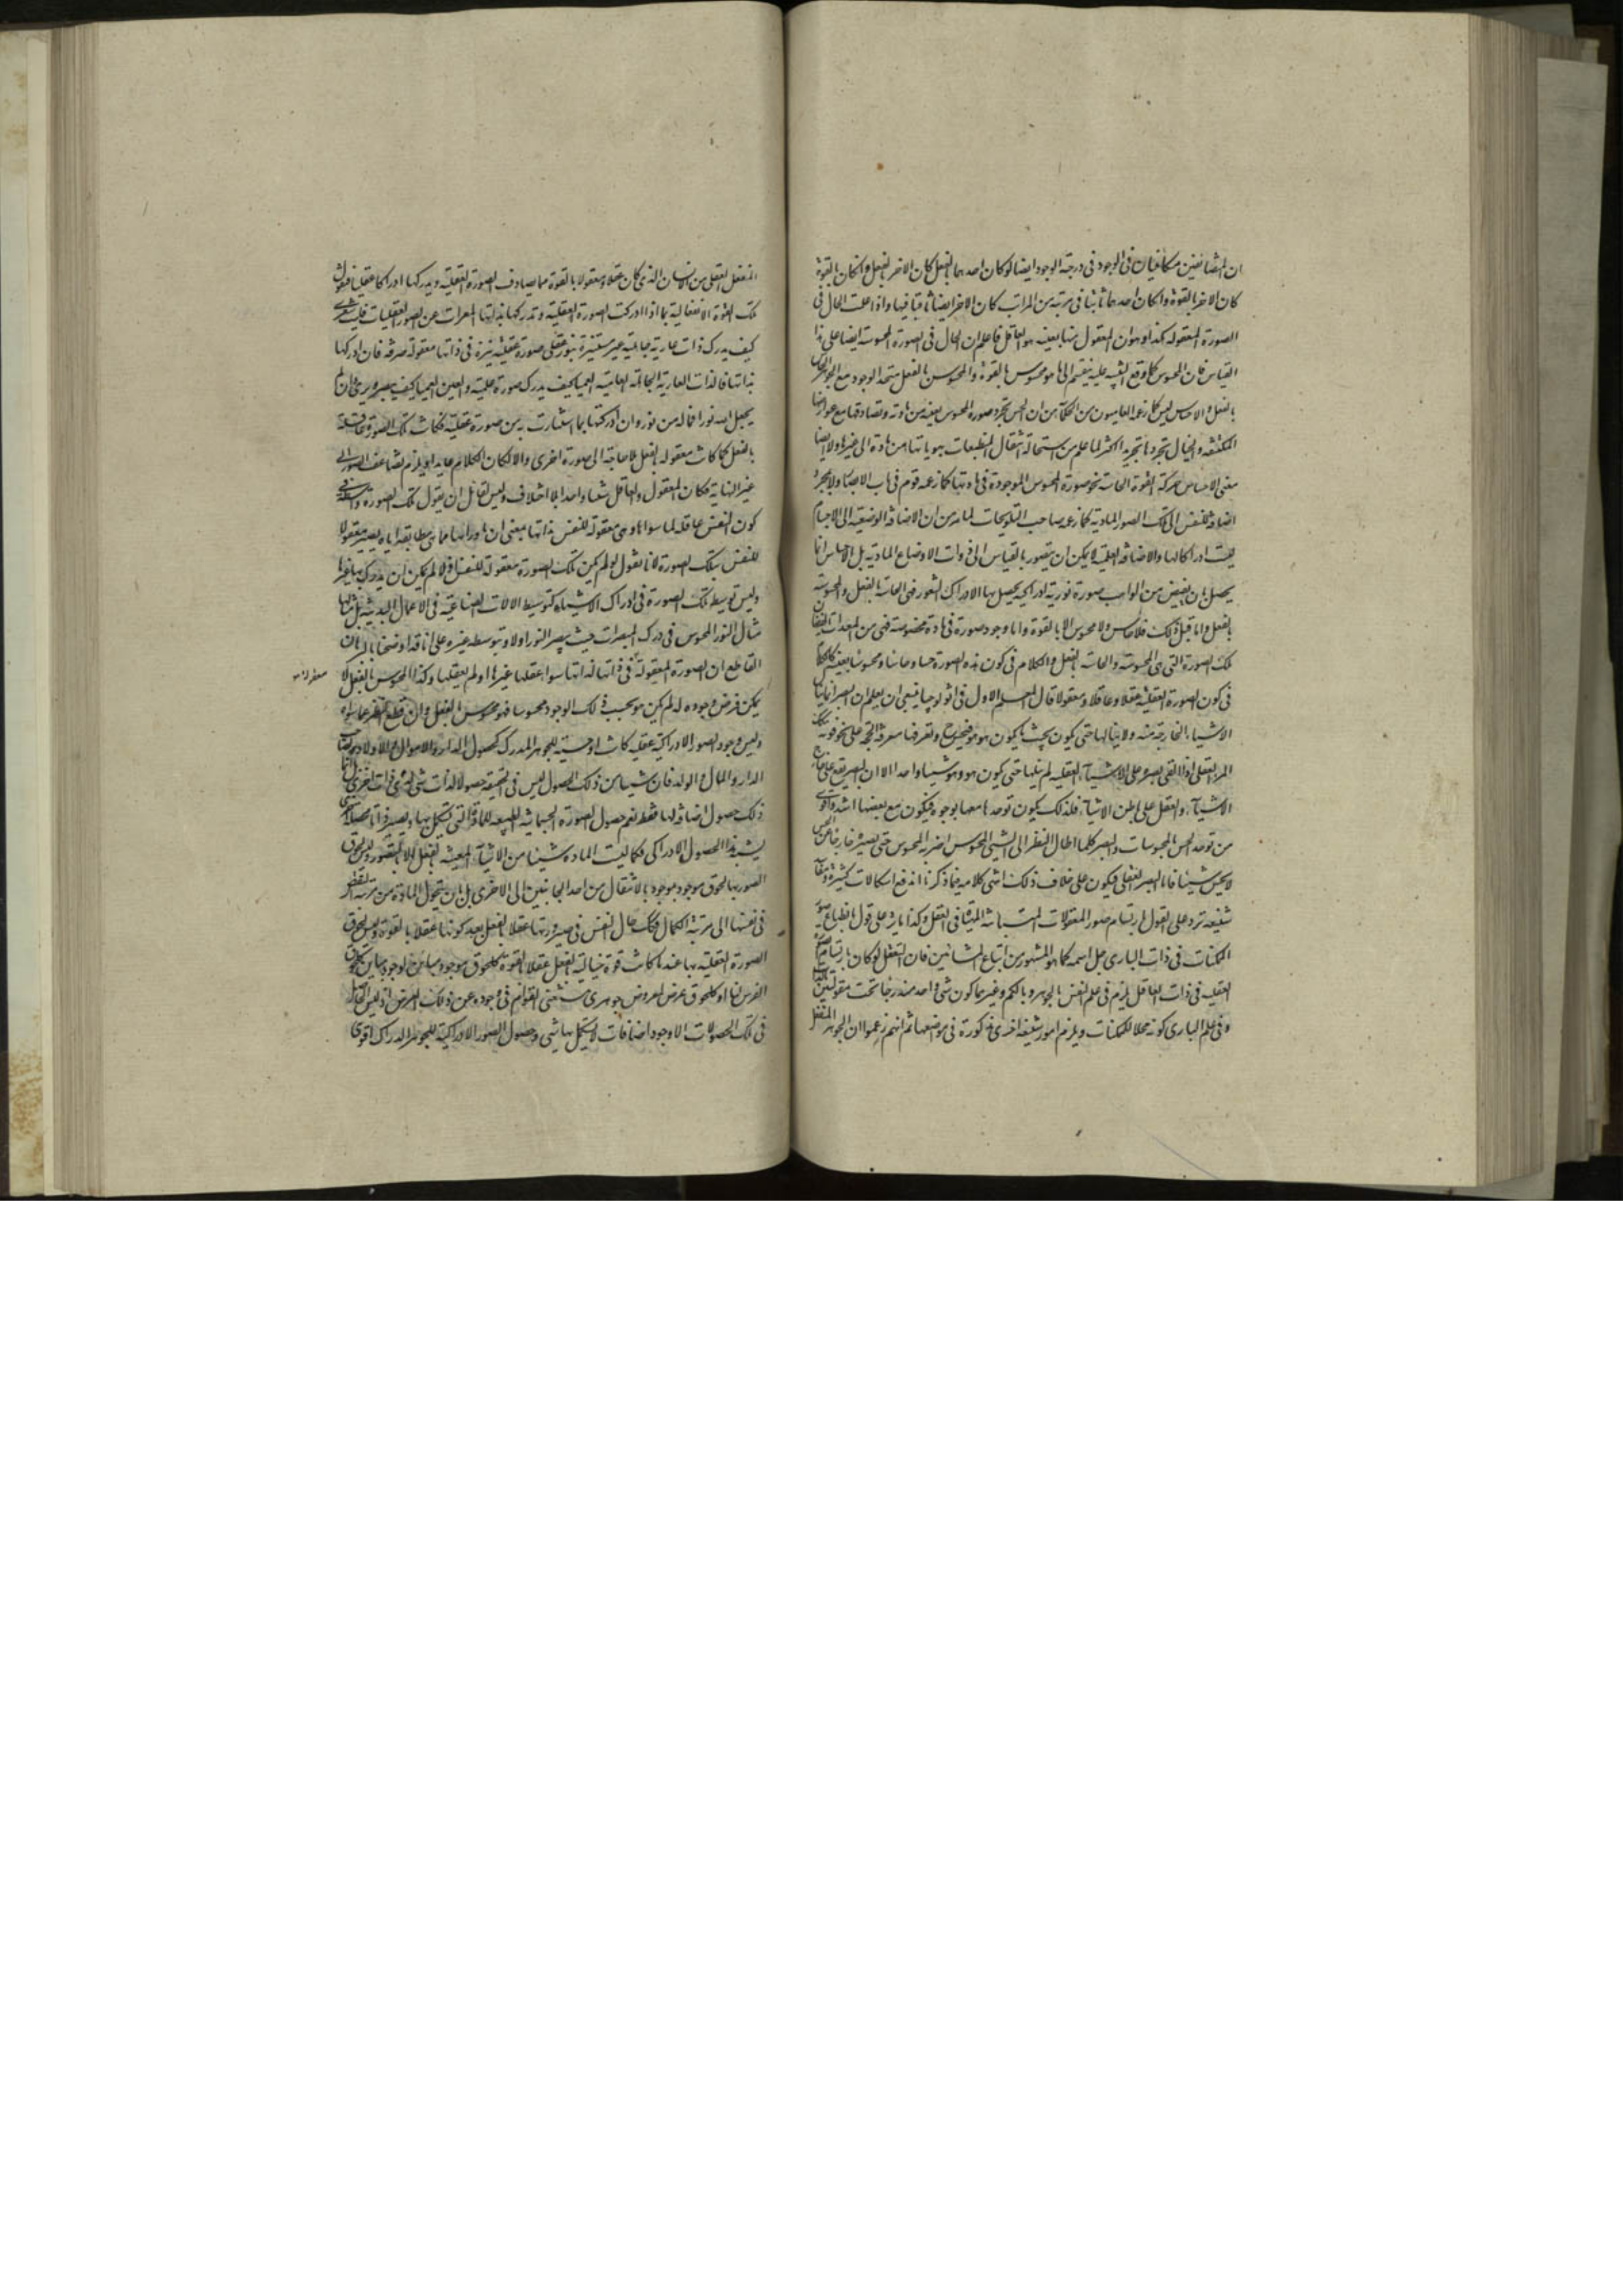 ان المتضائفين متكافئان فى الوجود و فى درجة الوجود ايضا لو كان احدهما بالفعل كان الاخر بالفعل و ان كان بالقوة
كان الاخر بالقوة و ان كان احدهما ثابتا فى مرتبة من المراتب كان الاخر ايضا ثابتا فيها و اذا علمت الحال فى
الصورة المعقولة هكذا و هو ان المعقول منها بعينه هو العاقل فاعلم ان الحال فى الصورة المحسوسة ايضا على هذا
القياس فان المحسوس كما وقع التنبيه عليه ينقسم الى ما هو محسوس بالقوة و المحسوس بالفعل متحد الوجود مع الجوهر الحاس
بالفعل و الاحساس ليس كما زعمه العاميون من الحكماء من ان الحس يجرد صورة المحسوس بعينه من مادته و تصادفها مع عوارضها
المكتنفة و الخيال يجردها تجريدا اكثر لما علم من استحالة انتقال المنطبعات بهوياتها من مادة الى غيرها و لا ايضا
معنى الاحساس حركة القوة الحاسة نحو صورة المحسوس الموجودة فى مادتها كما زعمه قوم فى باب الابصار و لا بمجرد
اضافة للنفس الى تلك الصور المادية كما زعمه صاحب التلويحات لما مر من ان الاضافة الوضعية الى الاجسام
ليست ادراكا لها و الاضافة العلمية لا يمكن ان يتصور بالقياس الى ذوات الاوضاع المادية بل الاحساس انما
يحصل بان يفيض من الواهب صورة نورية ادراكية يحصل بها الادراك و الشعور فهى الحاسة بالفعل و المحسوسة
بالفعل و اما قبل ذلك فلا حاس و لا محسوس الا بالقوة و اما وجود صورة فى مادة مخصوصة فهى من المعدات لفيضان
تلك الصورة التى هى المحسوسة و الحاسة بالفعل و الكلام فى كون هذه الصورة حسا و حاسا و محسوسا بعينه كالكلام
فى كون الصورة العقلية عقلا و عاقلا و معقولا قال المعلم الاول فى اثولوجيا ينبغى ان يعلم ان البصر انما ينال
الاشياء الخارجة منه و لا ينالها حتى يكون بحيث يكون هو هو فيحس ح و تعرفها معرفة صحيحة على نحو قوته كذلك
المرء العقلى اذا القى بصره على الاشياء العقلية لم ينلها حتى يكون هو و هو شيئا واحدا الا ان البصر يقع على خارج
الاشياء و العقل على باطن الاشياء فلذلك يكون توحده معها بوجوه فيكون مع بعضها اشد و اقوى
من توحد الحس بالمحسوسات و البصر كلما اطال النظر الى الشىء المحسوس اضر به المحسوس حتى يصيره خارجا عن الحس
لا يحس شيئا فاما البصر العقلى فيكون على خلاف ذلك انتهى كلامه فيما ذكرنا اندفع اشكالات كثيرة و مفاسد
شنيعة ترد على القول بارتسام صور المعقولات المتباينة الماهية فى العقل و كذا ما يرد على قول بانطباع صور
الممكنات فى ذات البارى جل اسمه كما هو المشهور من اتباع المشائين فان التعقل لو كان بارتسام الصورة
العقلية فى ذات العاقل يلزم فى علم النفس بالجوهر و بالكم و غيرهما كون شىء واحد مندرجا تحت مقولتين بالذات
و فى علم البارى كونه محلا للممكنات و يلزم امور شنيعة اخرى مذكورة فى مواضعها ثم انهم زعموا ان الجوهر المنفعل
المنفعل العقلى من الانسان الذى كان عقلا و معقولا بالقوة مما يصادف الصورة العقلية و يدركها ادراكا عقليا فنقول
تلك القوة الانفعالية بما اذا ادركت الصورة العقلية و تدركها بذاتها المعراة عن الصور العقليات فليت شعرى
كيف يدرك ذات عارية جاهلية غير مستنيرة بنور عقلى صورة عقلية نيرة فى ذاتها معقولة صرفة فان ادركها
بذاتها فالذات العارية الجاهلة العامية العمياء كيف يدرك صورة علمية و العين العمياء كيف يبصر و يرى و ان لم
يجعل الله نورا فما له من نور و ان ادركتها بما استنارت به من صورة عقلية فكانت تلك الصورة عاقلة
بالفعل كما كانت معقولة بالفعل بلا حاجة الى صورة اخرى و الا لكان الكلام عايدا و يلزم تضاعف الصور الى
غير النهاية فكان المعقول و العاقل شيئا واحدا بلا اختلاف و ليس لقائل ان يقول تلك الصورة واسطة فى
كون النفس عاقلة لما سواها و هى معقولة للنفس بذاتها بمعنى ان ما وراءها مما هى مطابقة اياه يصير معقولا
للنفس بتلك الصورة لانا نقول لو لم يكن تلك الصورة معقولة للنفس اولا لم يمكن ان يدرك بها غيرها
و ليس توسيط تلك الصورة فى ادراك الاشياء كتوسيط الالات الصناعية فى الاعمال البدنية بل مثالها
مثال النور المحسوس فى درك المبصرات حيث يبصر النور اولا و بتوسطه غيره على انا قد اوضحنا بالبرهان
القاطع ان الصورة المعقولة فى ذاتها لذاتها سواء عقلها غيرها او لم يعقلها و كذا المحسوس بالفعل لا
معقولة
يمكن فرض وجوده له لم يكن هو بحسب ذلك الوجود محسوسا فهو محسوس بالفعل و ان قطع النظر عما سواه
و ليس وجود الصور الادراكية عقلية كانت او حسية للجوهر المدرك كحصول الدار و الاموال و الاولاد لصاحب
الدار و المال و الولد فان شيئا من ذلك الحصول ليس فى الحقيقة حصولا لذات شىء لدى ذات اخرى بل انما
ذلك حصول اضافة لها فقط نعم حصول الصورة الجسمانية الطبيعية للمادة التى تستكمل بها و يصير ذاتا متحصلة اخرى
يشبه هذا الحصول الادراكى فكما ليست المادة شيئا من الاشياء المعينة بالفعل الا بالصور و ليس لحوق
الصور بها لحوق موجود بموجود بالانتقال من احد الجانبين الى الاخرى بل بان يتحول المادة من مرتبة النقص
فى نفسها الى مرتبة الكمال فكذلك حال النفس فى صيرورتها عقلا بالفعل بعد كونها عقلا بالقوة و ليس لحوق
الصورة العقلية بها عندما كانت قوة خيالية بالفعل عقلا بالقوة كلحوق موجود مباين لوجود مباين كلحوق
الفرس لنا او كلحوق عرض لمعروض جوهرى مستغنى القوام فى وجوده عن ذلك العرض اذ ليس الحاصل
فى تلك الحصولات الا وجود اضافات لا يستكمل بها شىء و حصول الصور الادراكية للجوهر الدراك اقوى